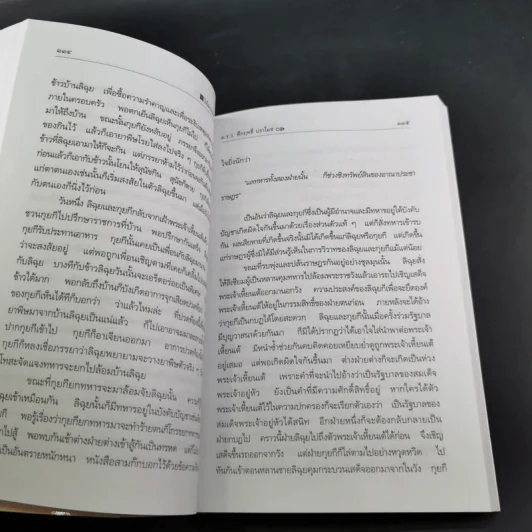 ๑๑๔
ข้าวบ้านลิฉุย เพื่อซื้อความรำคาญและเพื่อระงับ
ภายในครอบครัว พอตกเย็นลิฉุยเห็นกุยกีไม่ไป
มาให้ถึงบ้าน ขณะนั้นกุยกียังหลับอยู่ ภรรยาจึง
ของกินไว้ แล้วก็เอายาพิษโรยใส่ลงไปจริง ๆ
ข้าวลิฉุยเอามาให้ก็จะกิน แต่ภรรยาห้ามไว้
ก่อนแล้วก็เอากับข้าวนั้นโยนให้สุนัขกิน สุนัขก็ตาย กุยกี
แก่ตาตนเองเช่นนั้นก็เริ่มสงสัยในตัวลิฉุยขึ้นมา
กับตนเองก็นิ่งไว้ก่อน
วันหนึ่ง ลิฉุยและกุยกีกลับจากเฝ้าพระเจ้าเหี้ยนเต้
ชวนกุยกีไปปรึกษาราชการที่บ้าน พอปรึกษากันเสร็จ
กุยกีรับประทานอาหาร กุยกีนั้นเคยเป็นเพื่อนกับลิฉุย
ว่าจะสงสัยอยู่ แต่พอถูกเพื่อนเชิญตามที่เคยกัน
กับลิฉุย บางทีกับข้าวลิฉุยวันนั้นจะอร่อย
ข้าวได้มาก พอกลับถึงบ้านก็บังเกิดอาการจุกเสียด
ของกุยกีเห็นได้ทีก็บอกว่า ว่าแล้วไหมล่ะ
ยาพิษมาจากบ้านลิฉุยเป็นแน่แล้ว ก็ไปเอาอาจม
ปากกุยกีเข้าไป กุยกีก็อาเจียนออกมา
กุยกีก็หลงเชื่อภรรยาว่าลิฉุยพยายามจะวางยาพิษตัวจริง ๆ
โทสะจัดแจงทหารจะยกไปล้อมบ้านลิฉุย
ขณะที่กุยกียกทหารจะมาล้อมจับลิฉุยนั้น
เข้าเหมือนกัน ลิฉุยนั้นก็มีทหารอยู่ในบังคับบัญชา
พอรู้เรื่องว่ากุยกียกทหารมาจะทำร้ายตนก็โกรธ
ไปสู้ พอพบกันเข้าต่างฝ่ายต่างเข้าสู้กันเป็นทรหด
เป็นอันตรายหนักหนา หนังสือสามก๊กบอกไว้ด้วยข้อความ
ม.ร.ว. คึกฤทธิ์ ปราโมช
๑๑๕
ใจยิ่งนักว่า
"แลทหารทั้งสองฝ่ายนั้น ก็ช่วงชิงทรัพย์สินของอาณาประชา
ราษฎร"
เป็นอันว่าลิฉุยและกุยกีซึ่งเป็นผู้มีอำนาจและมีทหารอยู่ใต้บังคับ
บัญชาเกิดผิดใจกันขึ้นมาด้วยเรื่องส่วนตัวแท้ ๆ แต่ก็สั่งทหารเข้ารบ
กัน ผลเสียหายที่เกิดขึ้นจริงนั้นมิได้เกิดขึ้นแก่ลิฉุยหรือกุยกี แต่เกิดขึ้น
แก่ราษฎรผู้ซึ่งมิได้มีส่วนรู้เห็นในการวิวาทของลิฉุยและกุยกีแม้แต่น้อย
ขณะที่รบพุ่งและปล้นราษฎรกันอยู่อย่างชุลมุนนั้น ลิฉุยสั่ง
ให้ลิเซียมผู้เป็นหลานคุมทหารไปล้อมพระราชวังแล้วเอารถไปเชิญเสด็จ
พระเจ้าเหี้ยนเต้มาออกนอกวัง ความประสงค์ของลิฉุยก็เพื่อจะยึดองค์
พระเจ้าเหี้ยนเต้ให้อยู่ในกรรมสิทธิ์ของฝ่ายตนก่อน ภายหลังจะได้อ้าง
ว่ากุยกีเป็นกบฏได้โดยสะดวก ลิฉุยและกุยกีนั้นเมื่อครั้งร่วมรัฐบาล
มีบุญวาสนาด้วยกันมา ก็มิได้ปรากฏว่าได้เอาใจใส่นำพาต่อพระเจ้า
เหี้ยนเต้ มีหน้าซ้ำช่วยกันคบคิดคอยเหยียบย่ำดูถูกพระเจ้าเหี้ยนเต้
อยู่เสมอ แต่พอเกิดผิดใจกันขึ้นมา ต่างฝ่ายต่างก็จะเกิดเป็นห่วง
พระเจ้าเหี้ยนเต้ เพราะคำที่จะนำไปอ้างว่าเป็นรัฐบาลของสมเด็จ
พระเจ้าอยู่หัว ยังเป็นคำที่มีความศักดิ์สิทธิ์อยู่ หากใครได้ตัว
พระเจ้าเหี้ยนเต้ไว้ในความปกครองก็จะเรียกตัวเองว่า เป็นรัฐบาลของ
สมเด็จพระเจ้าอยู่หัวได้สนิท อีกฝ่ายหนึ่งก็จะต้องกลับกลายเป็น
ฝ่ายกบฏไป คราวนี้ฝ่ายลิฉุยไปถึงตัวพระเจ้าเหี้ยนเต้ได้ก่อน จึงเชิญ
เสด็จขึ้นรถออกจากวัง แต่ฝ่ายกุยกีก็ไล่ตามไปอย่างหวุดหวิด ไป
ทันกันเข้าตอนหลานชายลิฉุยคุมกระบวนเสด็จออกมาจากในวัง กุยกี